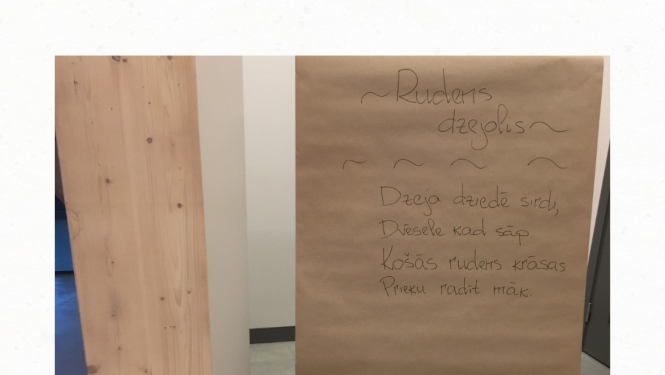 ~Rudens
dzejolis~
~ ~ ~ ~
Dzeja dziedē sirdi,
Dvēsele kad sāp
Košās rudens krāsas
Prieku radīt māk.